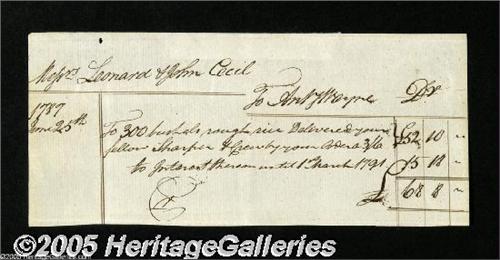 Messrs Leonard & John Cecil
To Anty Wayne Dr
1787
June 25th To 300 bushels rough rice Delivered your £52 10 "
fellow Sharper & Crew by your Order a 3/6
to Interest thereon until 1st March 1791 15 18 "
£ 68 8 "
©2005 HeritageGalleries